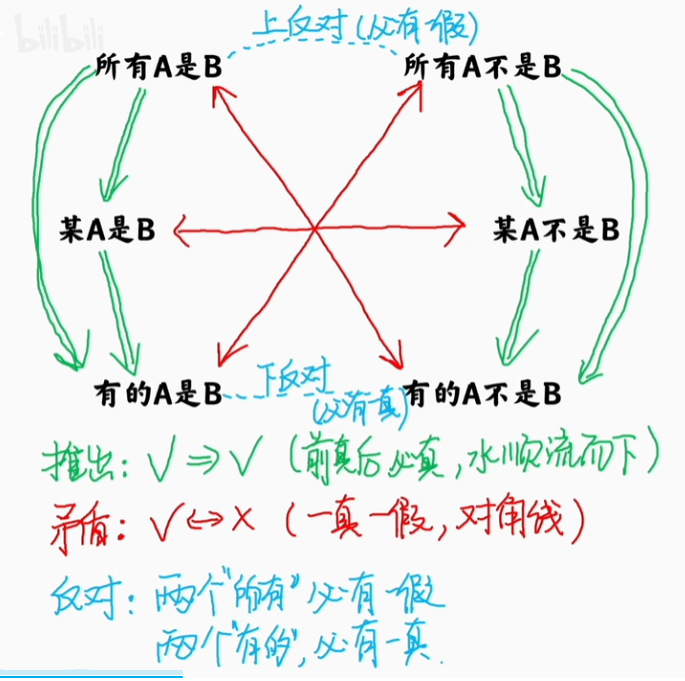 bilibili
上反对(必有一假)
所有A是B
所有A不是B
某A是B
某A不是B
有的A是B
下反对
(必有一真)
有的A不是B
推出：√⇒√（前真后必真，水顺流而下）
矛盾：√↔×（一真一假，对角线）
反对：两个"所有"必有一假
两个"有的"，必有一真.